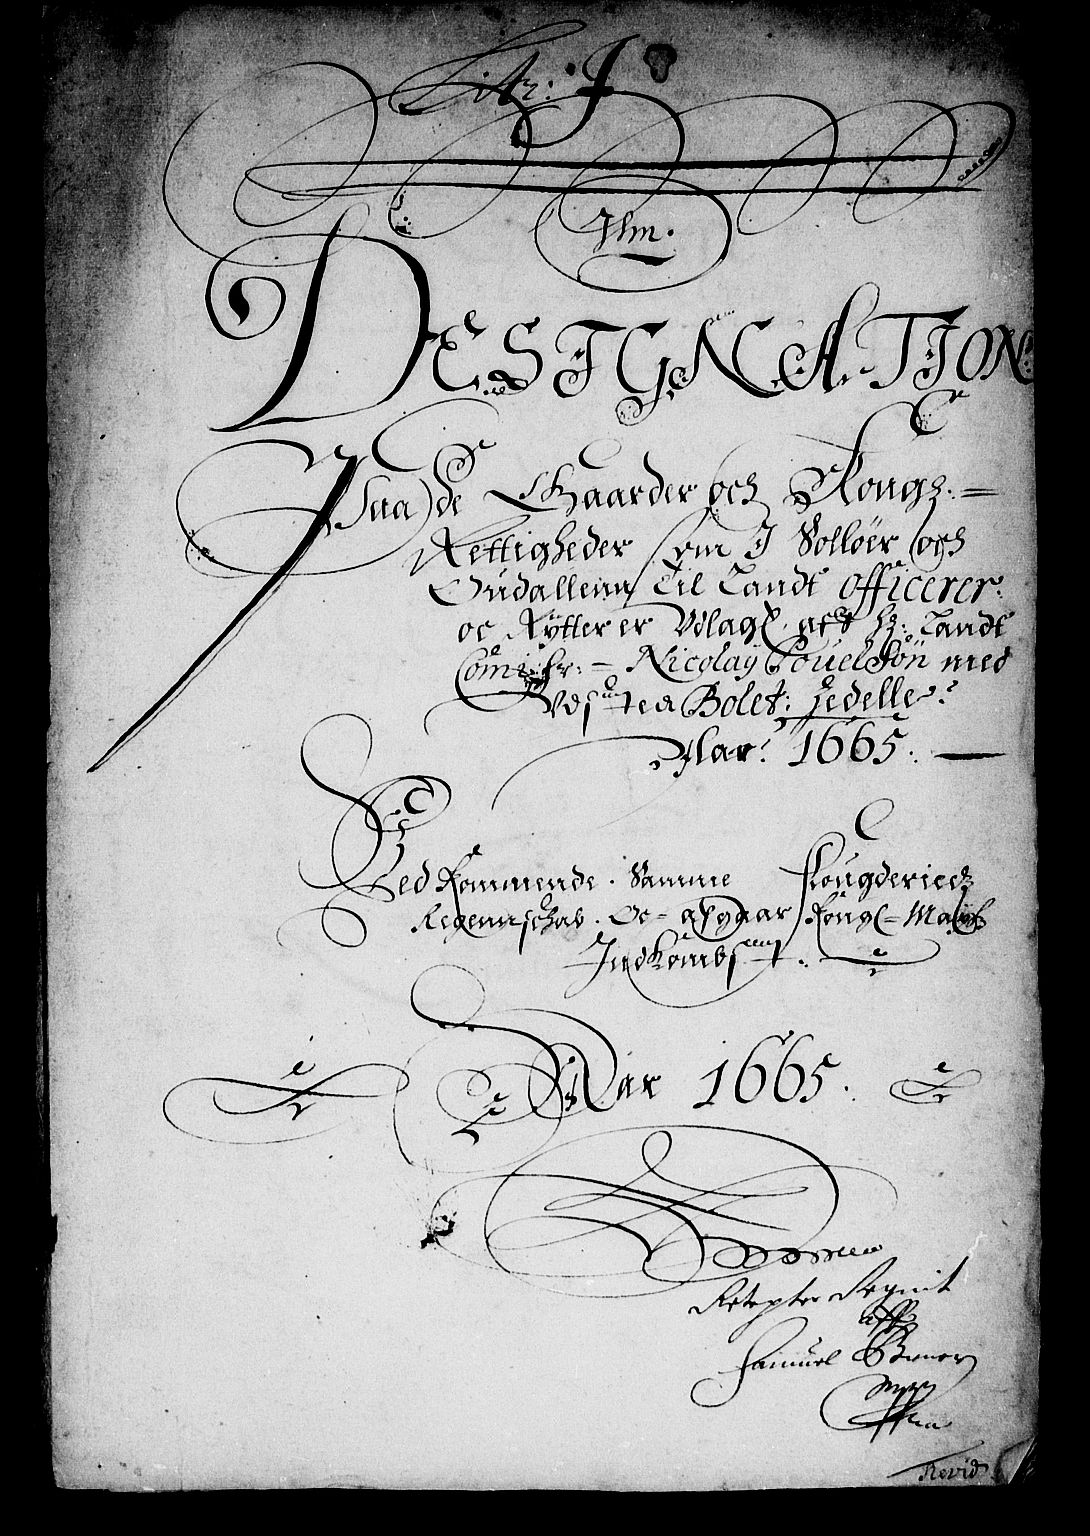 Litr: J
DESIGNATION
Paa de Gaarder och Kongz.=
Rettigheder som J Solløer och
Gudallenn Til Landt officerer.
oc Rytterer Vdlagt. aff hr: Landt
Com̄ifr:= Nicolaÿ Pouelsøn med
Vdsten Bolet: Zedeller
Aar: 1665.
Vedkommende. Samme Fougderiedz
Regennschab. Oc= afgaar Kongl= Maÿtz
Indkombst.
Aar 1665.
Samuel
Revid